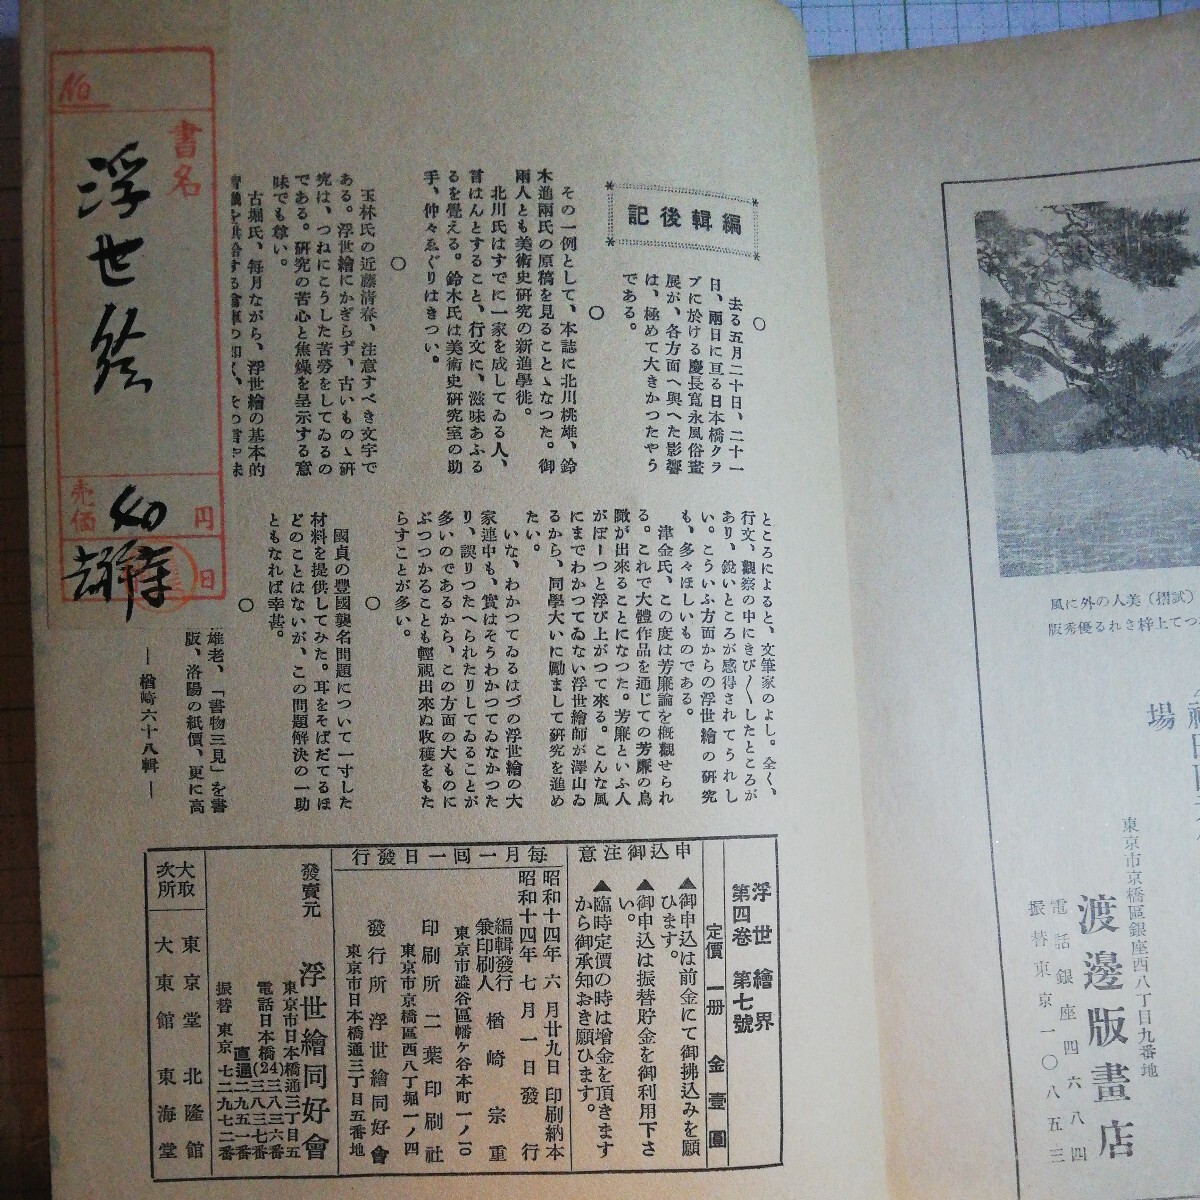 編輯後記
○
去る五月二十日、二十一
日、兩日に亘る日本橋クラ
ブに於ける慶長寬永風俗畫
展が、各方面へ與へた影響
は、極めて大きかつたやう
である。
○
その一例として、本誌に北川桃雄、鈴
木進兩氏の原稿を見ることゝなつた。御
兩人とも美術史硏究の新進學徙。
北川氏はすでに一家を成してゐる人、
言はんとすること、行文に、滋味あふる
るを覺える。鈴木氏は美術史硏究室の助
手、仲々ゑぐりはきつい。
○
玉林氏の近藤清春、注意すべき文字で
ある。浮世繪にかぎらず、古いものゝ硏
究は、つねにこうした苦勞をしてゐるの
である。硏究の苦心と焦燥を呈示する意
味でも尊い。
古堀氏、每月ながら、浮世繪の基本的
ところによると、文筆家のよし。全く、
行文、觀察の中にきび〱したところが
あり、銳いところが感得されてうれし
い。こういふ方面からの浮世繪の硏究
も、多々ほしいものである。
津金氏、この度は芳廉論を槪觀せられ
る。これで大體作品を通じての芳廉の鳥
瞰が出來ることになつた。芳廉といふ人
がぼーつと浮び上がつて來る。こんな風
にまでわかつてゐない浮世繪師が澤山ゐ
るから、同學大いに勵まして硏究を進め
たい。
いな、わかつてゐるはづの浮世繪の大
家連中も、實はそうわかつてゐなかつた
り、誤りつたへられたりしてゐることが
多いのであるから、この方面の大ものに
ぶつつかることも輕視出來ぬ收穫をもた
らすことが多い。
○
國貞の豐國襲名問題について一寸した
材料を提供してみた。耳をそばだてるほ
どのことはないが、この問題解決の一助
ともなれば幸甚。
○
雄老、「書物三見」を書
版、洛陽の紙價、更に高
― 楢崎六十八輯 ―
No
書名
浮世絵
売価
円
日
浮世繪界
第四卷 第七號
定價 一册 金壹圓
申込御注意
▲御申込は前金にて御拂込みを願
ひます。
▲御申込は振替貯金を御利用下さ
い。
▲臨時定價の時は增金を頂きます
から御承知おき願ひます。
每月一回一日發行
昭和十四年六月廿九日印刷納本
昭和十四年七月一日發行
編輯發行
兼印刷人 楢崎宗重
東京市澁谷區幡ヶ谷本町一ノ一〇
印刷所 二葉印刷社
東京市京橋區西八丁堀一ノ四
發行所 浮世繪同好會
東京市日本橋通三丁目五番地
發賣元 浮世繪同好會
東京市日本橋通三丁目五
電話日本橋(24)三八三六番
三八三七番
直通二九五一番
振替東京七二九七二番
大取次所
東京堂 北隆館
大東館 東海堂
風に外の人美(摺試)
版秀優るれさ梓上てつ
場
東京市京橋區銀座西八丁目九番地
渡邊版畫店
電話銀座四六八四
振替東京一〇八五三